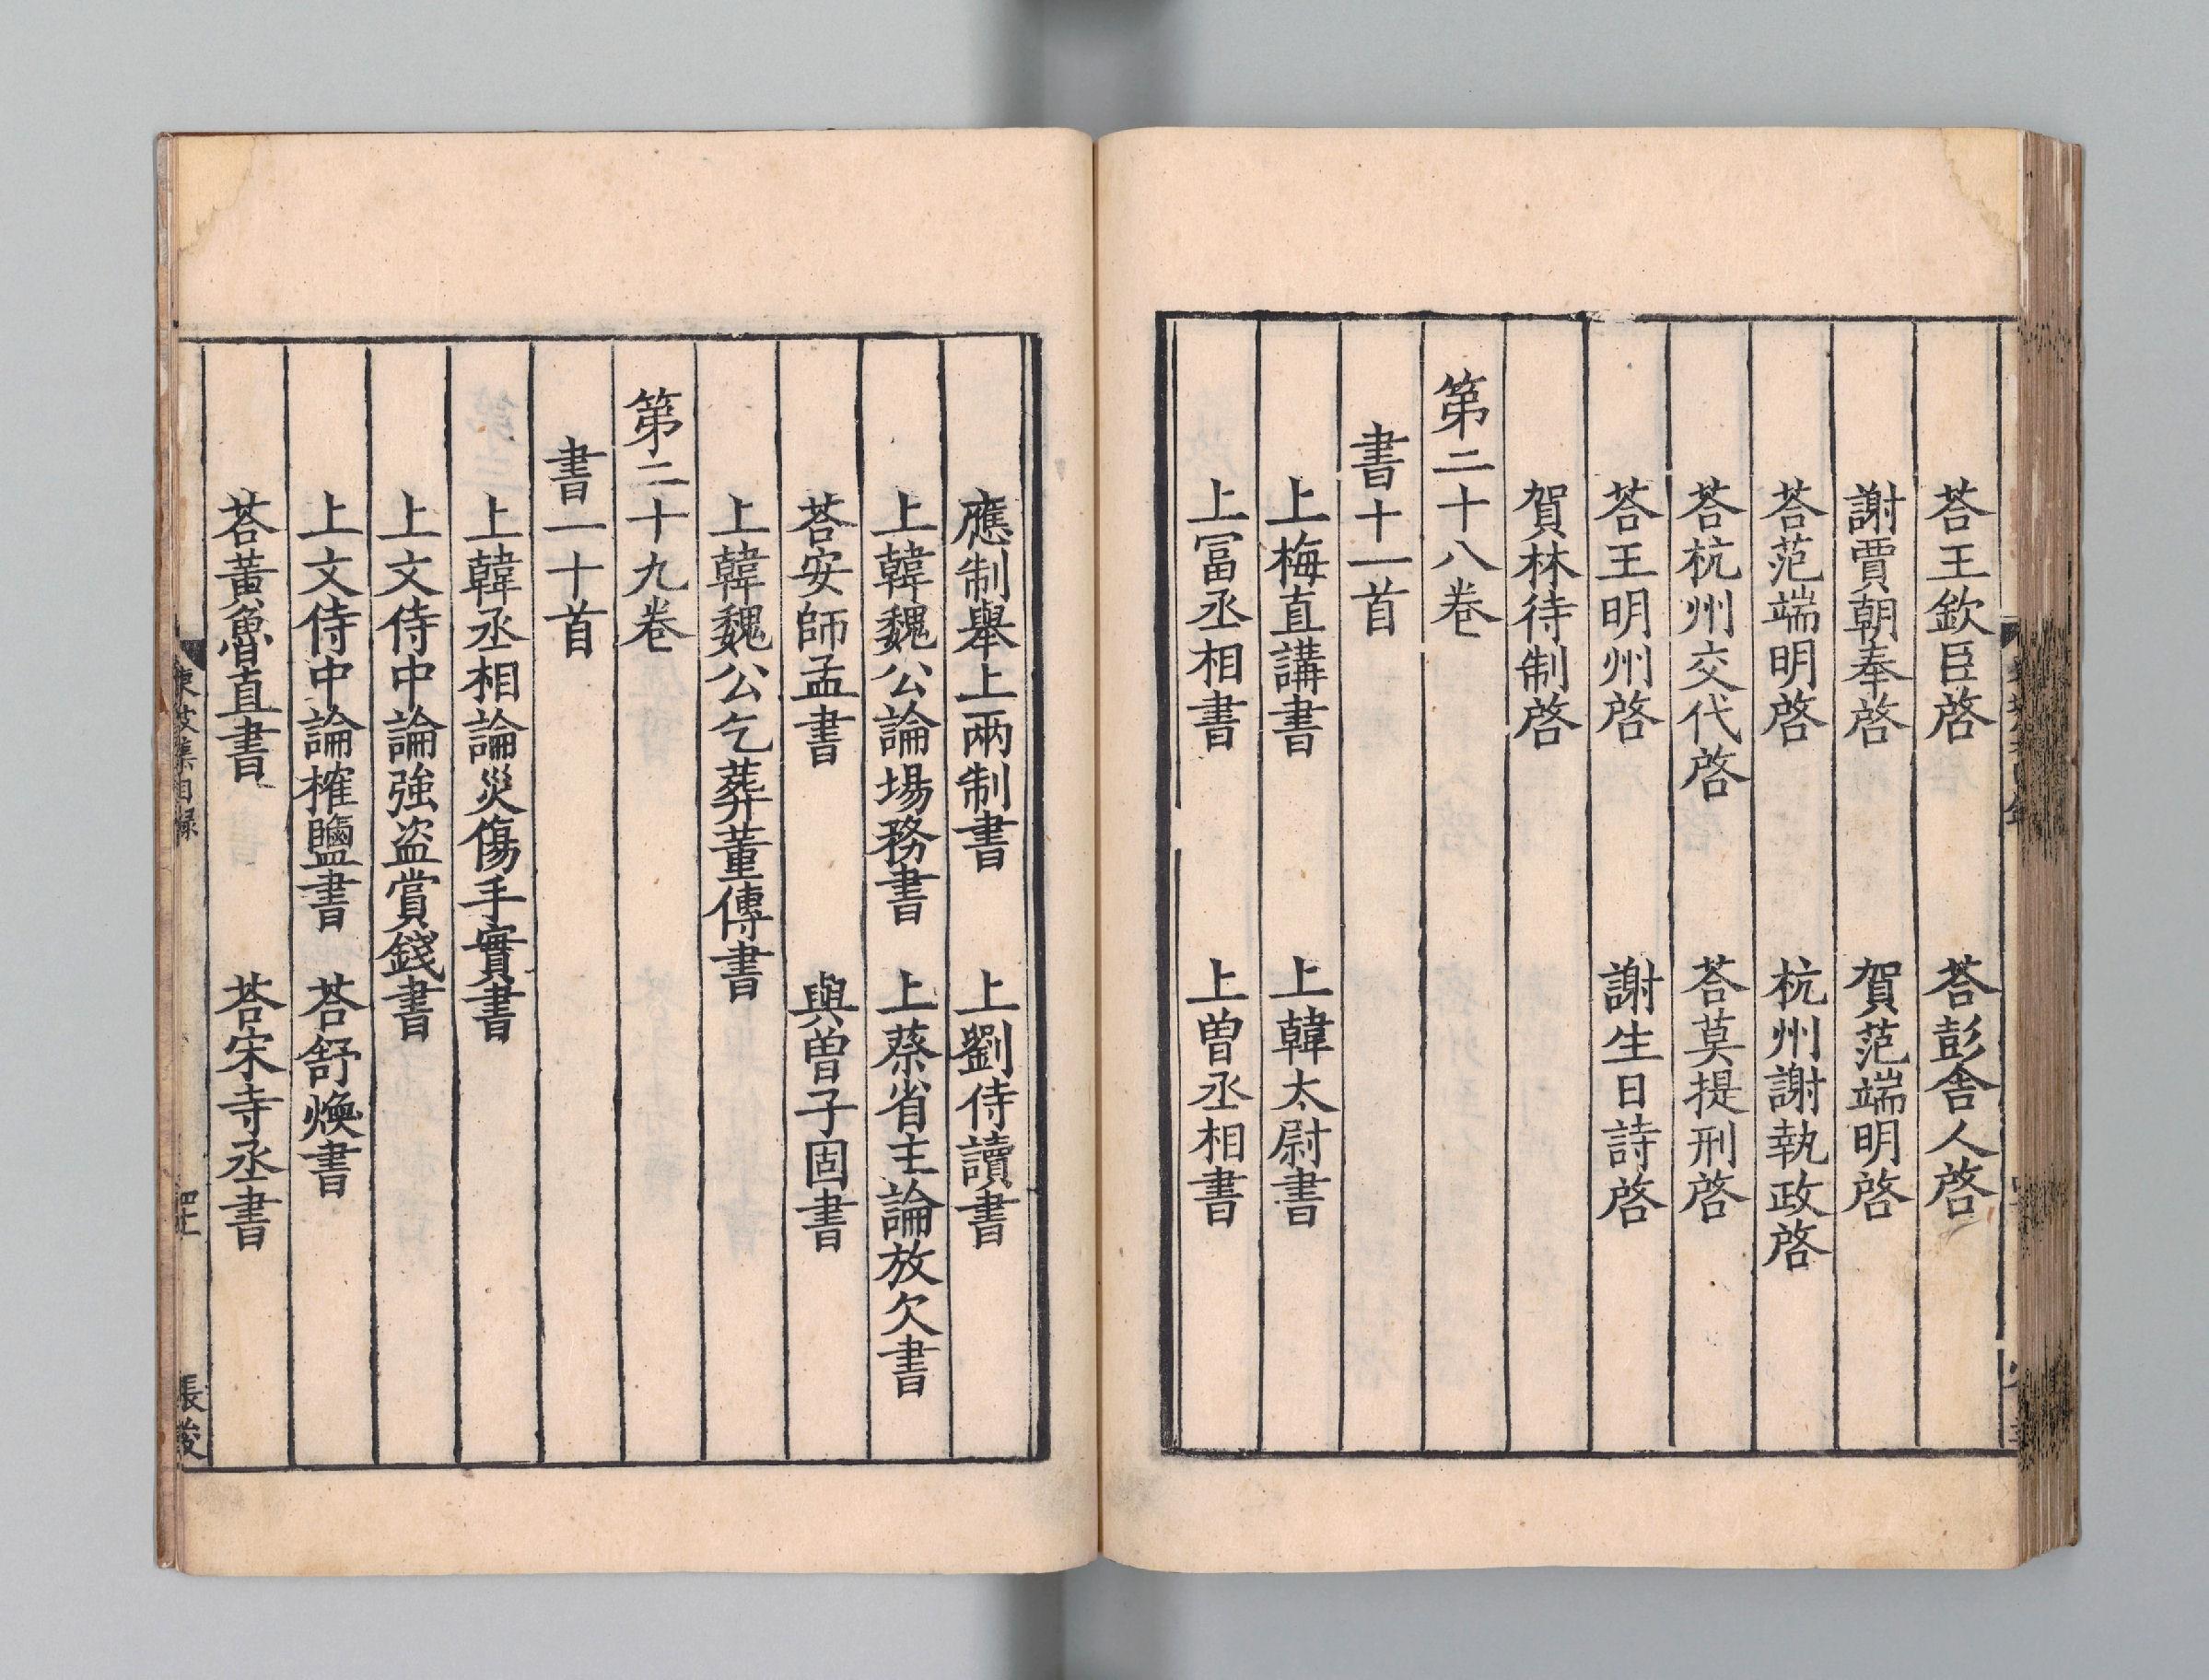 荅王欽臣啓　荅彭舍人啓
謝賈朝奉啓　賀范端明啓
荅范端明啓　杭州謝執政啓
荅杭州交代啓　荅莫提刑啓
荅王明州啓　謝生日詩啓
賀林待制啓
第二十八卷
書十一首
上梅直講書　上韓太尉書
上冨丞相書　上曽丞相書
應制舉上兩制書　上劉侍讀書
上韓魏公論場務書　上蔡省主論放欠書
荅安師孟書　與曽子固書
上韓魏公乞葬董傳書
第二十九卷
書一十首
上韓丞相論災傷手實書
上文侍中論強盗賞錢書
上文侍中論搉鹽書　荅舒煥書
荅黃魯直書　荅宋寺丞書
東坡集目録
張俊